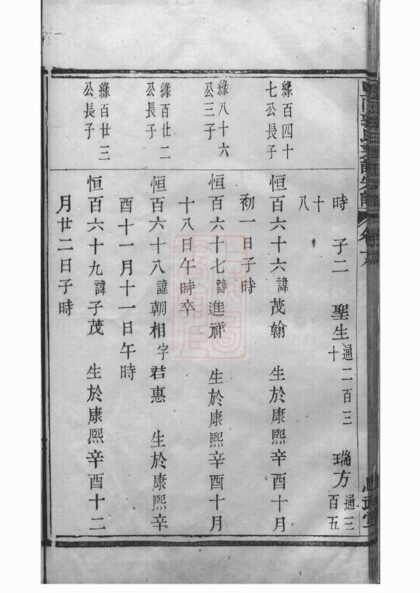 時　子二　聖生通二百三十　瑞方通三百五
十八
緣百四十七公長子
恒百六十六諱茂翰　生於康熙辛酉十月
初一日子時
緣八十六公三子
恒百六十七諱進祥　生於康熙辛酉十月
十八日午時卒
緣百廿二公長子
恒百六十八諱朝相字君惠　生於康熙辛
酉十一月十一日午時
緣百廿三公長子
恒百六十九諱子茂　生於康熙辛酉十二
月廿二日子時